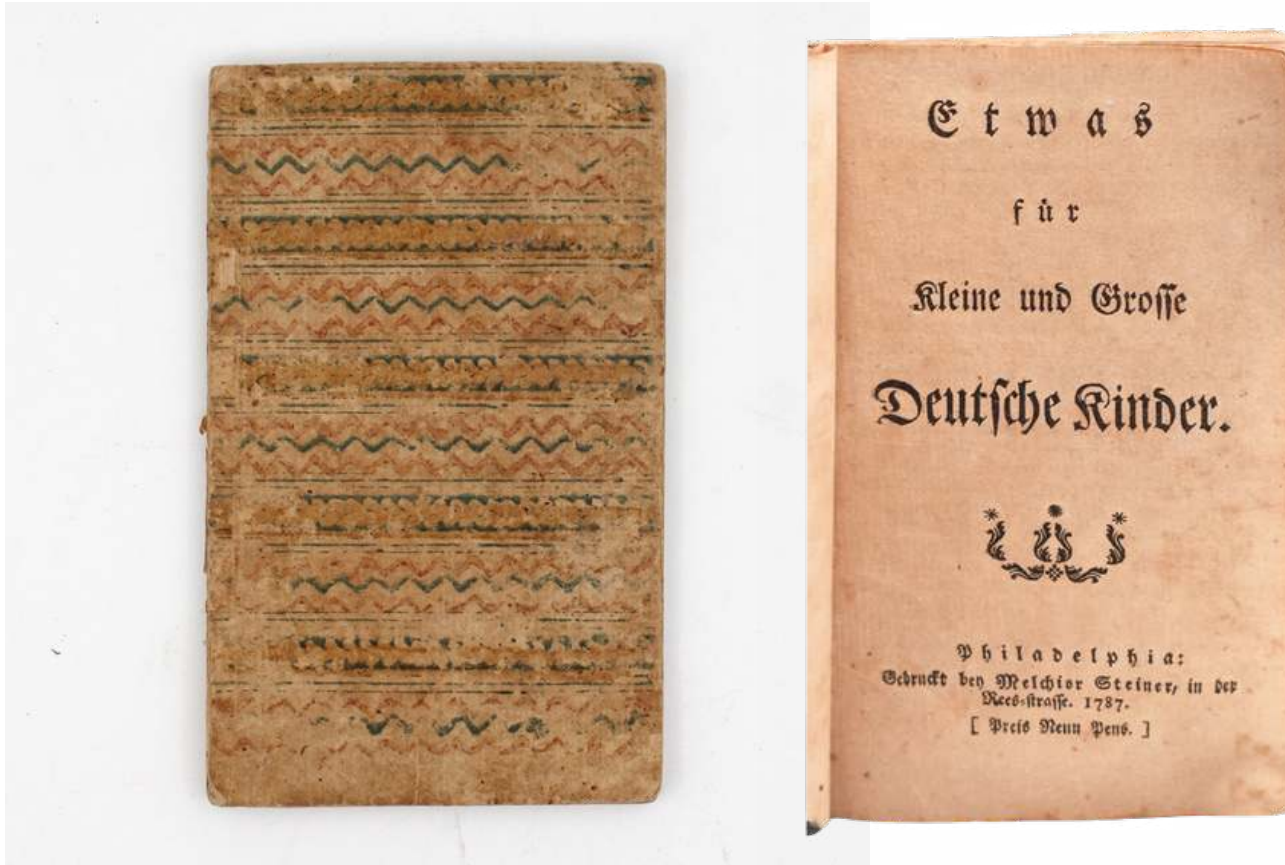 Etwas
für
Kleine und Grosse
Deutsche Kinder.
Philadelphia:
Gedruckt bey Melchior Steiner, in der
Rees-strasse. 1787.
[ Preis Neun Pens. ]